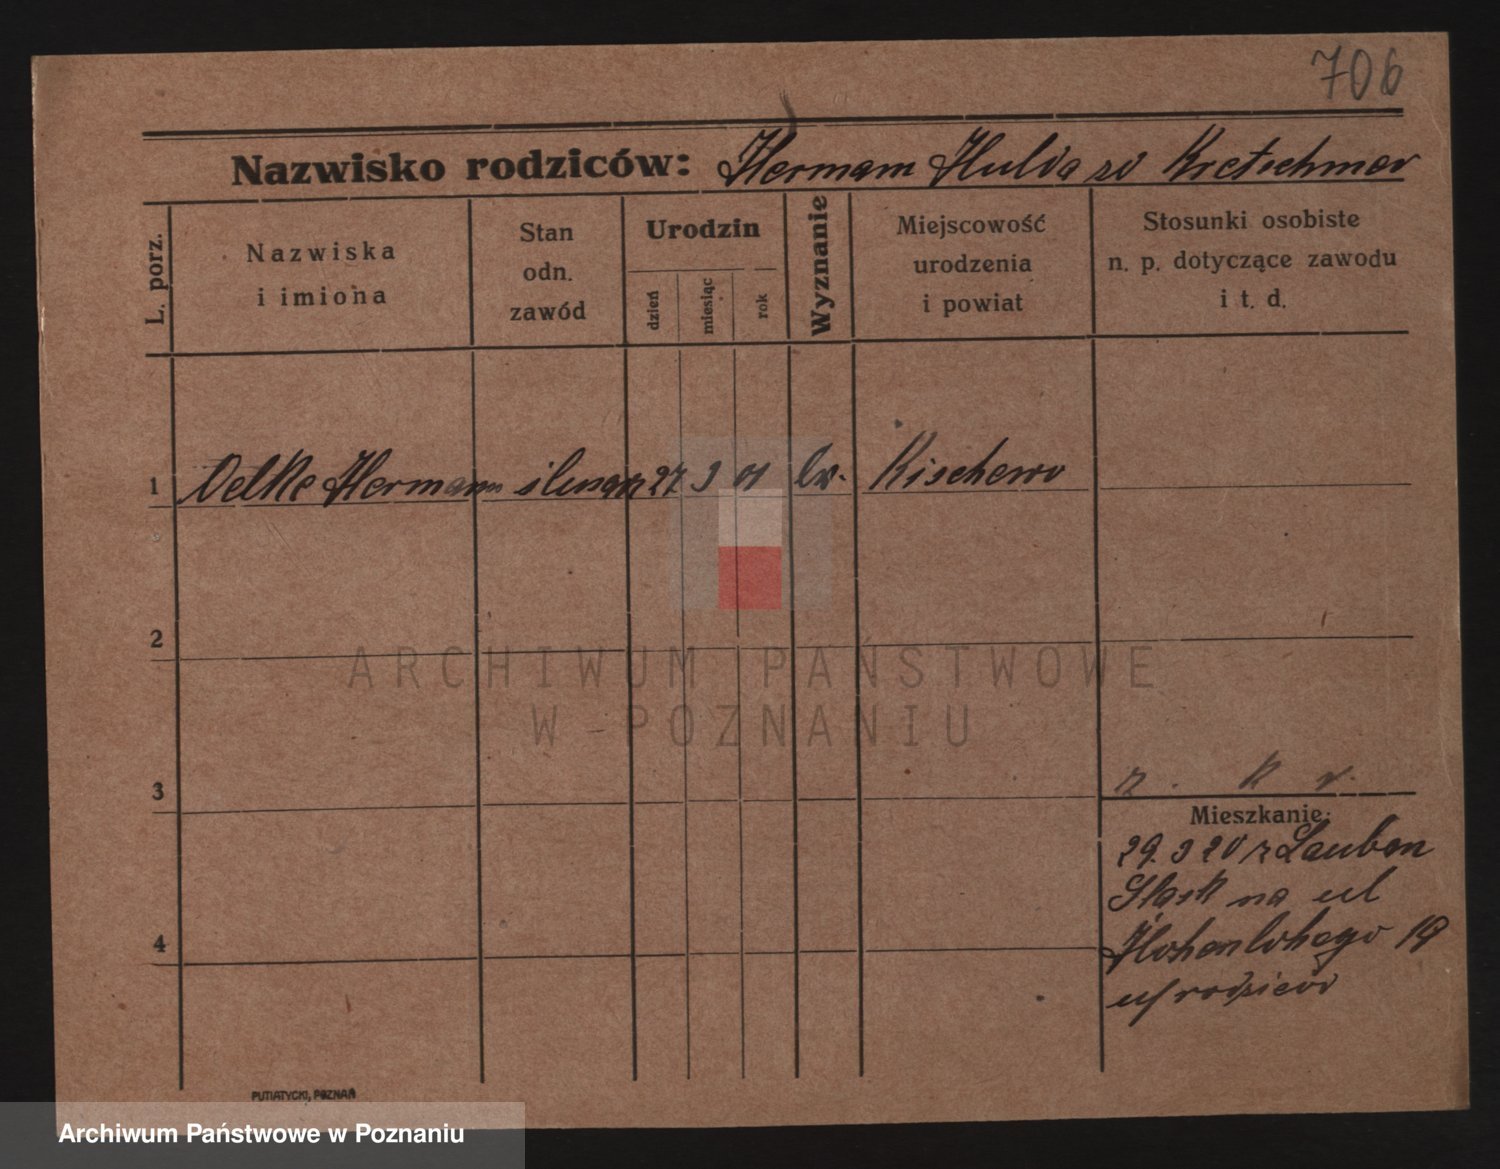 706
Nazwisko rodziców: Hermann Hulda zd Kretschmer
L. porz.
Nazwiska
i imiona
Stan
odn.
zawód
Urodzin
dzień
miesiąc
rok
Wyznanie
Miejscowość
urodzenia
i powiat
Stosunki osobiste
n. p. dotyczące zawodu
i t. d.
1 Oelke Hermann ślusarz 27 9 01 ew. Kischewo
2
3
r. k v.
4
Mieszkanie:
29. 9 20 z Lauban
Śląsk na ul
Hohenlohego 19
u/ rodziców
PUTIATYCKI, POZNAŃ
ARCHIWUM PAŃSTWOWE
W POZNANIU
Archiwum Państwowe w Poznaniu